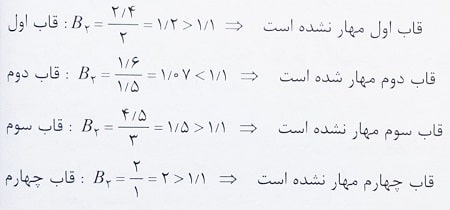 قاب اول : B۲ = ۲/۴ / ۲ = ۱/۲ > ۱/۱ ⇒ قاب اول مهار نشده است
قاب دوم : B۲ = ۱/۶ / ۱/۵ = ۱/۰۷ < ۱/۱ ⇒ قاب دوم مهار شده است
قاب سوم : B۲ = ۴/۵ / ۳ = ۱/۵ > ۱/۱ ⇒ قاب سوم مهار نشده است
قاب چهارم : B۲ = ۲ / ۱ = ۲ > ۱/۱ ⇒ قاب چهارم مهار نشده است